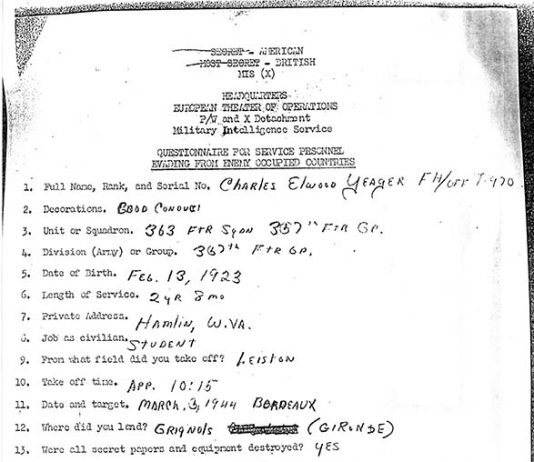 SECRET - AMERICAN
MOST SECRET - BRITISH
MIS (X)
HEADQUARTERS
EUROPEAN THEATER OF OPERATIONS
P/W and X Detachment
Military Intelligence Service
QUESTIONNAIRE FOR SERVICE PERSONNEL
EVADING FROM ENEMY OCCUPIED COUNTRIES
1. Full Name, Rank, and Serial No. Charles Elwood Yeager
2. Decorations. Good Conduct
3. Unit or Squadron. 363 FTR SQDN 357th FTR GP.
4. Division (Army) or Group. 357th FTR GP.
5. Date of Birth. FEB. 13, 1923
6. Length of Service. 2 yR 8 mo
7. Private Address. HAMLIN, W.VA.
8. Job as civilian. STUDENT
9. From what field did you take off? LEISTON
10. Take off time. APP. 10:15
11. Date and target. MARCH, 3, 1944 BORDEAUX
12. Where did you land? GRIGNOLS (GIRONDE)
13. Were all secret papers and equipment destroyed? YES